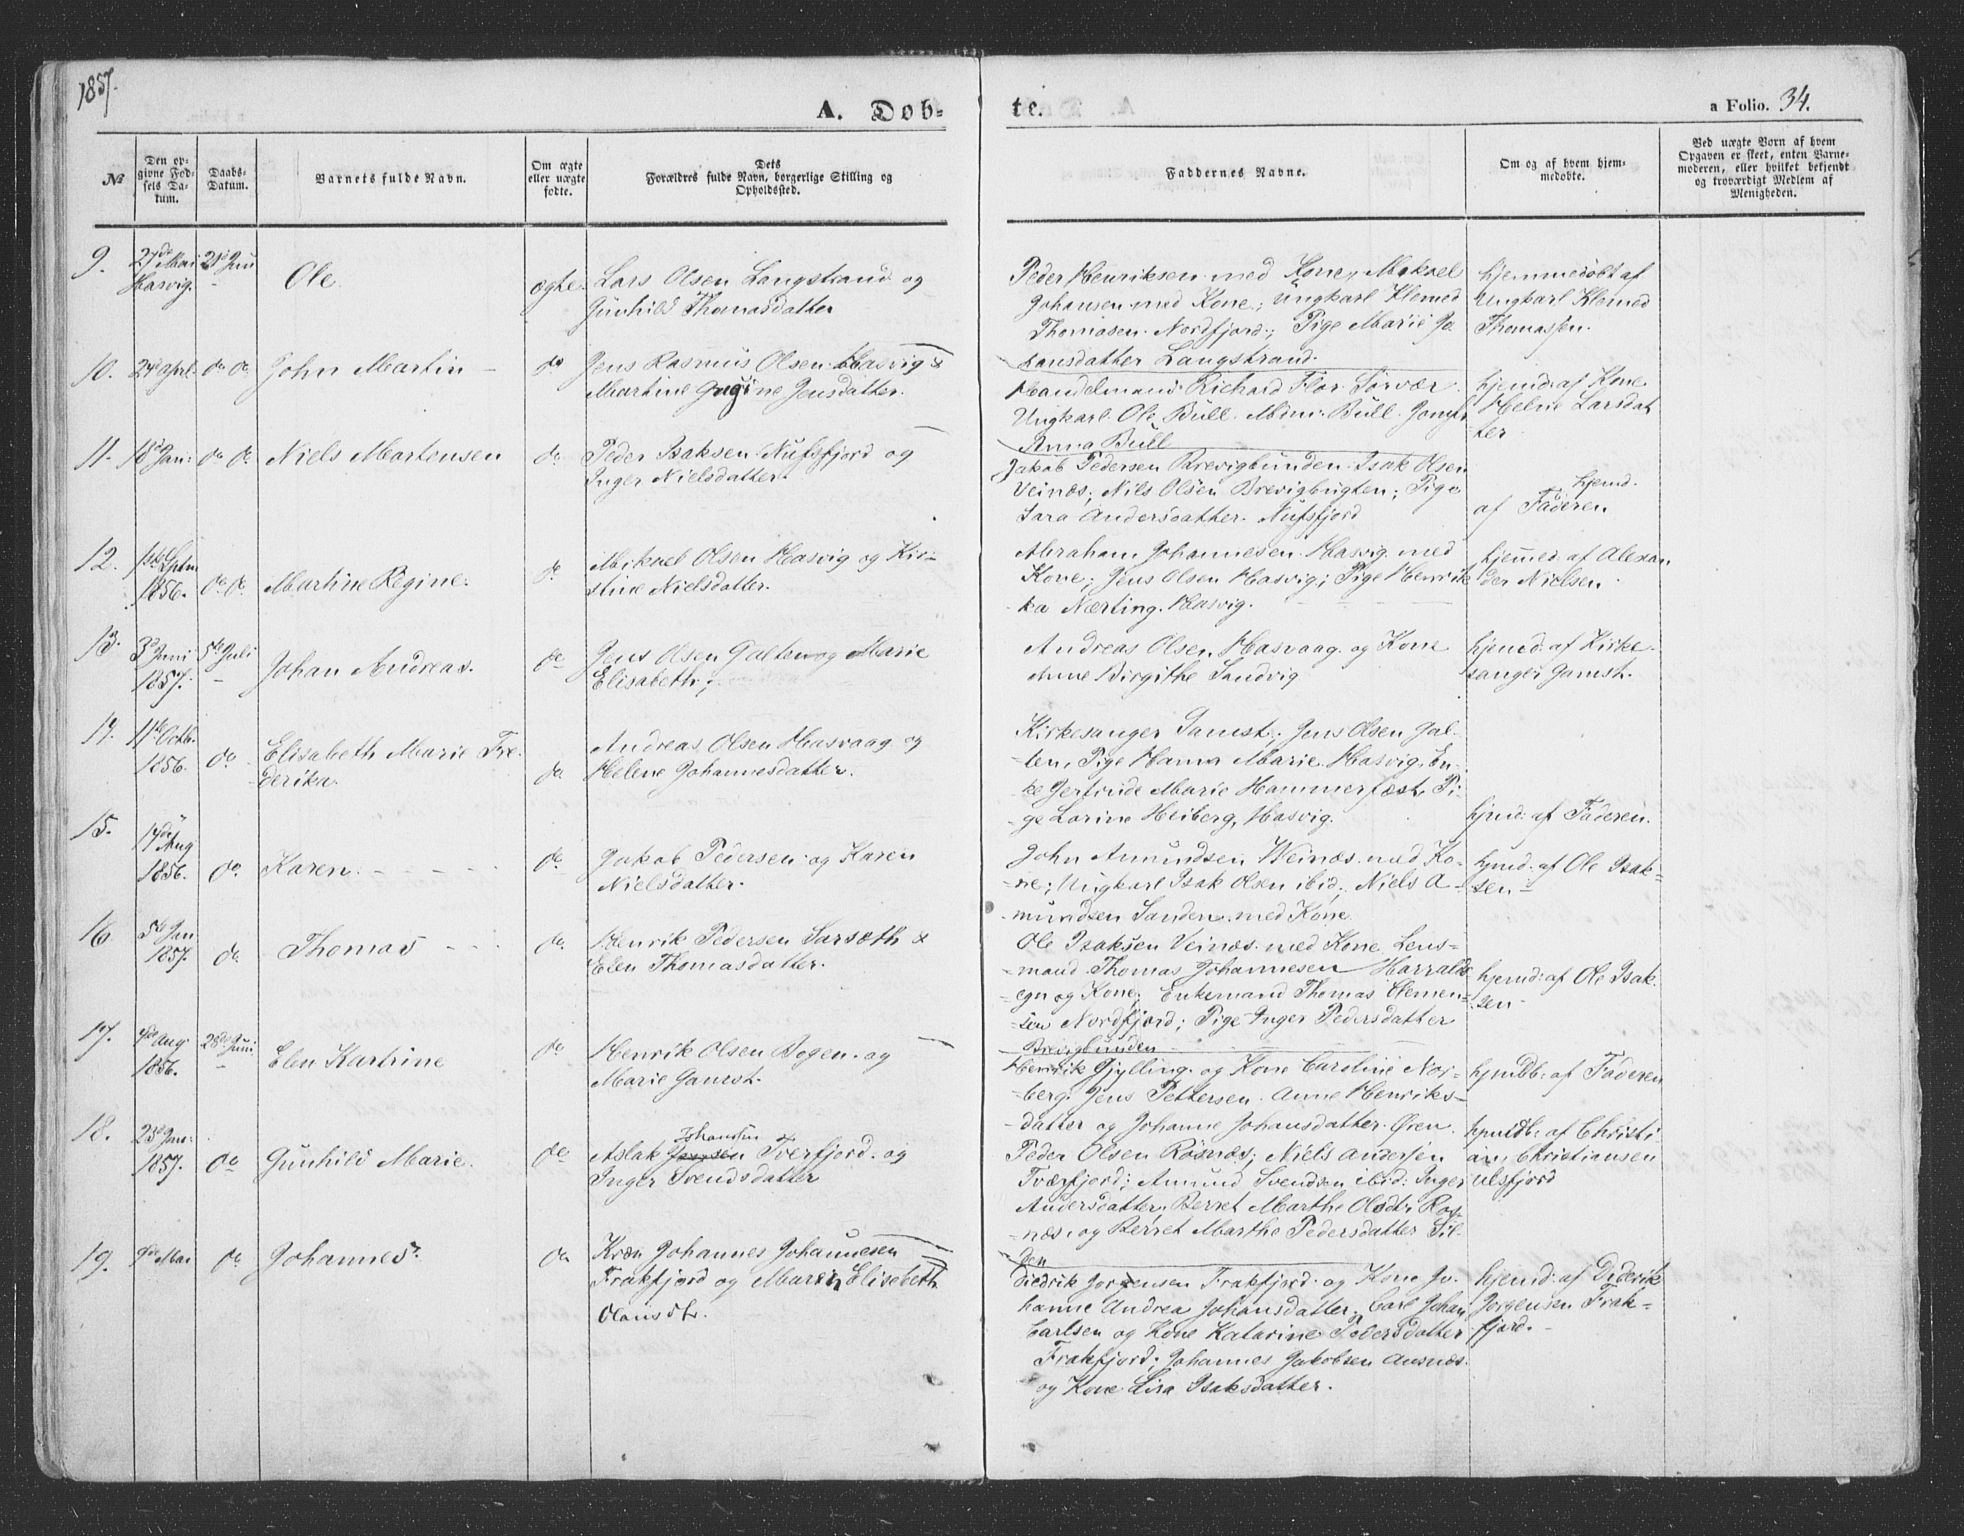 1857.
A. Døb-
te.
a Folio. 34.
№
Den op-
givne Fød-
sels Da-
tum.
Daabs-
Datum.
Barnets fulde Navn.
Om ægte
eller uægte
fødte.
Dets
Forældres fulde Navn, borgerlige Stilling og
Opholdssted.
Faddernes Navne.
Om og af hvem hjem-
medøbte.
Ved uægte Børn af hvem
Opgaven er skeet, enten Barne-
moderen, eller hvilket bekjendt
og troværdigt Medlem af
Menigheden.
9.
27de Mai
Hasvig.
21de Juni
Ole
ægte.
Lars Olsen Langstrand og
Gunhild Thomasdatter
Peder Henriksen med Kone, Mikael
Johansen med Kone; Ungkarl Klemed
Thomasen Nordfjord; Pige Marie Jo
hansdatter Langstrand.
hjemmedøbt af
Ungkarl Klemed
Thomassen.
10.
24de April
do do
John Martin
do
Jens Rasmus Olsen Hasvig &
Martine Jensdatter.
Handelsmand Richard Flor Sørvær
Ungkarl Ole Bull. Mdm: Bull Jomfr
Anna Bull
hjemd: af Kone
Helne Larsdat
ter
11.
18de Jan:
do do
Niels Mortensen
do
Peder Isaksen Nufsfjord og
Inger Nielsdatter.
Jakob Pedersen Brevigbunden. Isak Olsen
Veinæs; Nils Olsen Brevigbugten; Pige
Sara Andersdatter Nufsfjord
hjemd.
af Faderen
12.
1ste Sptm
1856.
do do
Martine Regine.
do
Mikael Olsen Hasvig og Kir-
stine Nielsdatter.
Abraham Johannesen Hasvig med
Kone; Jens Olsen Hasvig; Pige Henrik
ka Nærting. Hasvig.
hjemed af Alexan
der Nielsen
13.
3de Juni
1857.
5te Juli
Johan Andreas.
do
Jens Olsen Galten og Marie
Elisabeth;
Andreas Olsen Hasvaag og Kone
Anne Birgithe Sandvig
hjemed: af Kirke
sanger Gamst.
14.
11te Octb.
1856.
do
Elisabeth Marie Fre
derika.
do
Andreas Olsen Hasvaag og
Helene Johannesdatter.
Kirkesanger Gamst; Jens Olsen Gal-
ten, Pige Hanna Marie Hasvig, En-
ke Gertrude Marie Hammerfest, Pi-
ge Lorine Heiberg, Hasvig.
hjmd: af Faderen.
15.
17de Aug
1856.
do
Karen.
do
Jakob Pedersen og Karen
Nielsdatter.
John Amundsen Weinæs med Ko-
ne; Ungkarl Isak Olsen ibid; Niels A-
mundsen Sanden med Kone
hjmd: af Ole Isak-
sen
16
5te Jan
1857.
do
Thomas
do
Henrik Pedersen &
Elen Thomasdatter.
Ole Isaksen Veinæs med Kone Lens-
mand Thomas Johannesen Harrald
egn og Kone; Enkemand Thomas Clemen-
sen Nordfjord; Pige Inger Pedersdatter
Brevigbunden
hjemd: af Ole Isak
sen
17.
4de Aug.
1856.
28de Juni
Elen Kartrine
do
Henrik Olsen Bogen og
Marie Gamst.
Henrik Gjylling og Kone Caroline Nor-
berg. Jens Pettersen. Anne Henriks-
datter og Johanne Johansdatter Øien
hjmdb: af Faderen
18.
23de Jan:
1857.
do
Gunhild Marie.
do
Johansen
Aslak Tverfjord og
Inger Svendsdatter
Peder Olsen Rosnæs; Niels Andersen
Tværfjord; Amund Svendsen ibid: Inger
Andersdatter, Berret Marthe Olsdt: Ros
næs. og Berret Marthe Pedersdatter Sil-
den
hjmdb: af Christi
an Christiansen
Ulsfjord
19.
9de Mai
do
Johannes.
do
Johannes Johannesen
Frakfjord og Maren Elisabeth
Olausdtr.
Diedrik Jørgensen Frakfjord og Kone Jo-
hanne Andrea Johansdatter; Carl Johan
Carlsen og Kone Katarine Pedersdatter
Frakfjord; Johannes Jakobsen Ausnæs
og Kone Lisa Isaksdatter.
hjemd: af Diderik
Jørgensen Frak-
fjord.